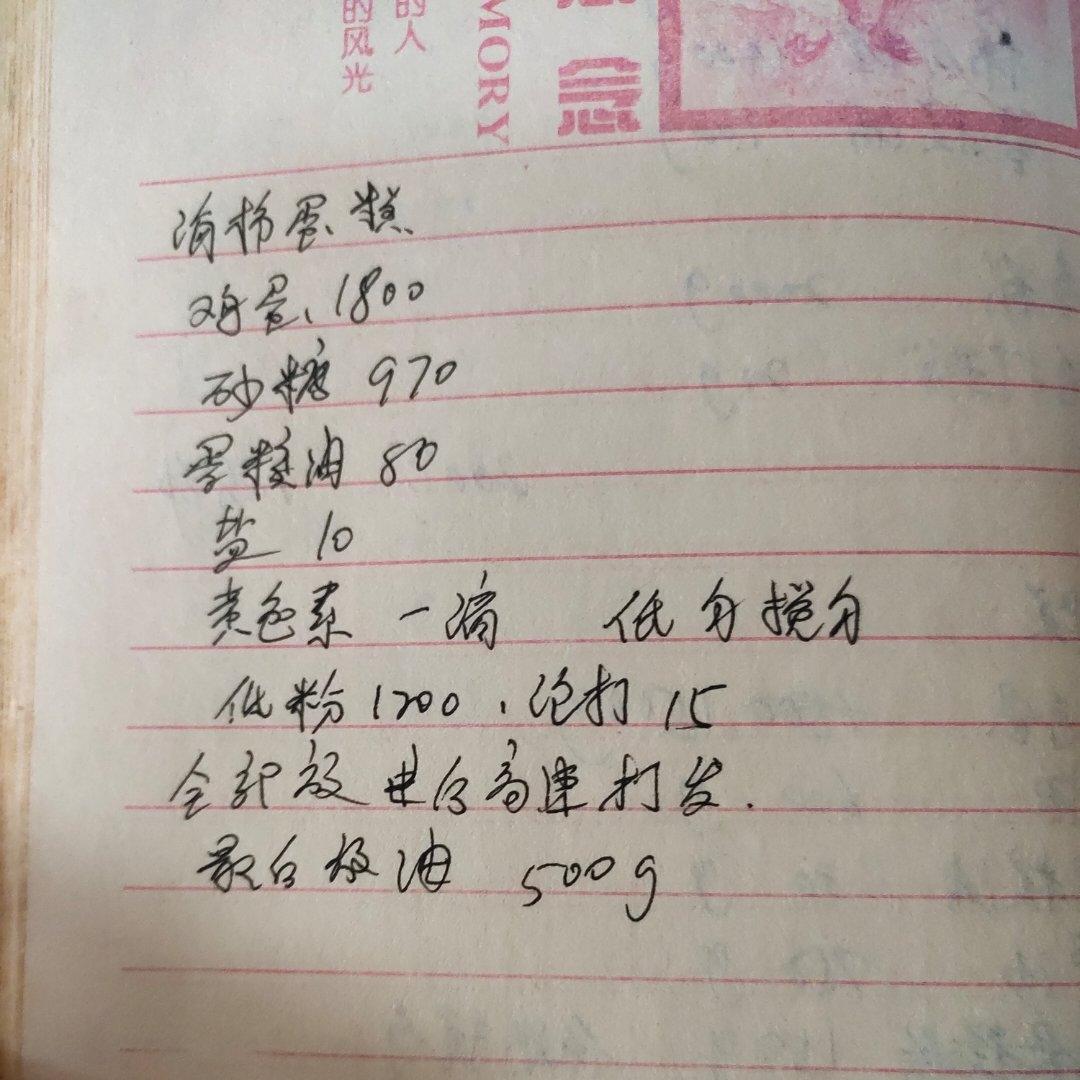 的风光
的人
MORY
海棉蛋糕
鸡蛋、1800
砂糖 970
蛋糕油 80
盐 10
黄色素 一滴 低匀搅匀
低粉1200，泡打15
全部放进后高速打发.
最后放油 500g